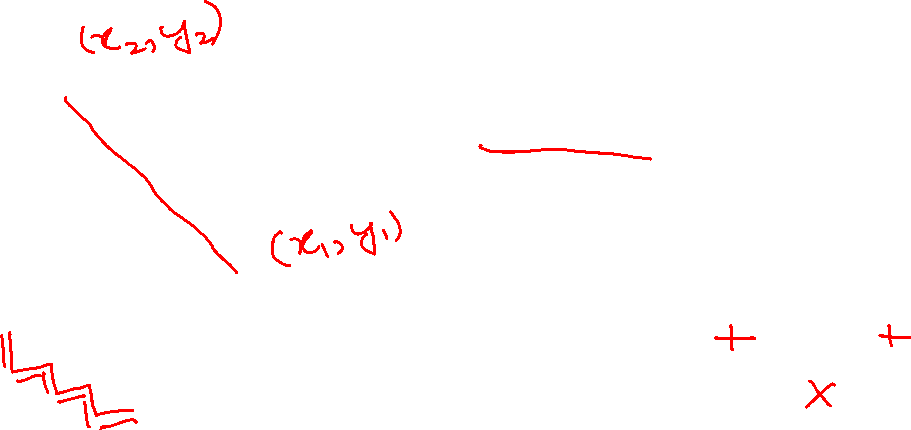 (x₂, y₂)
(x₁, y₁)
+ +
x